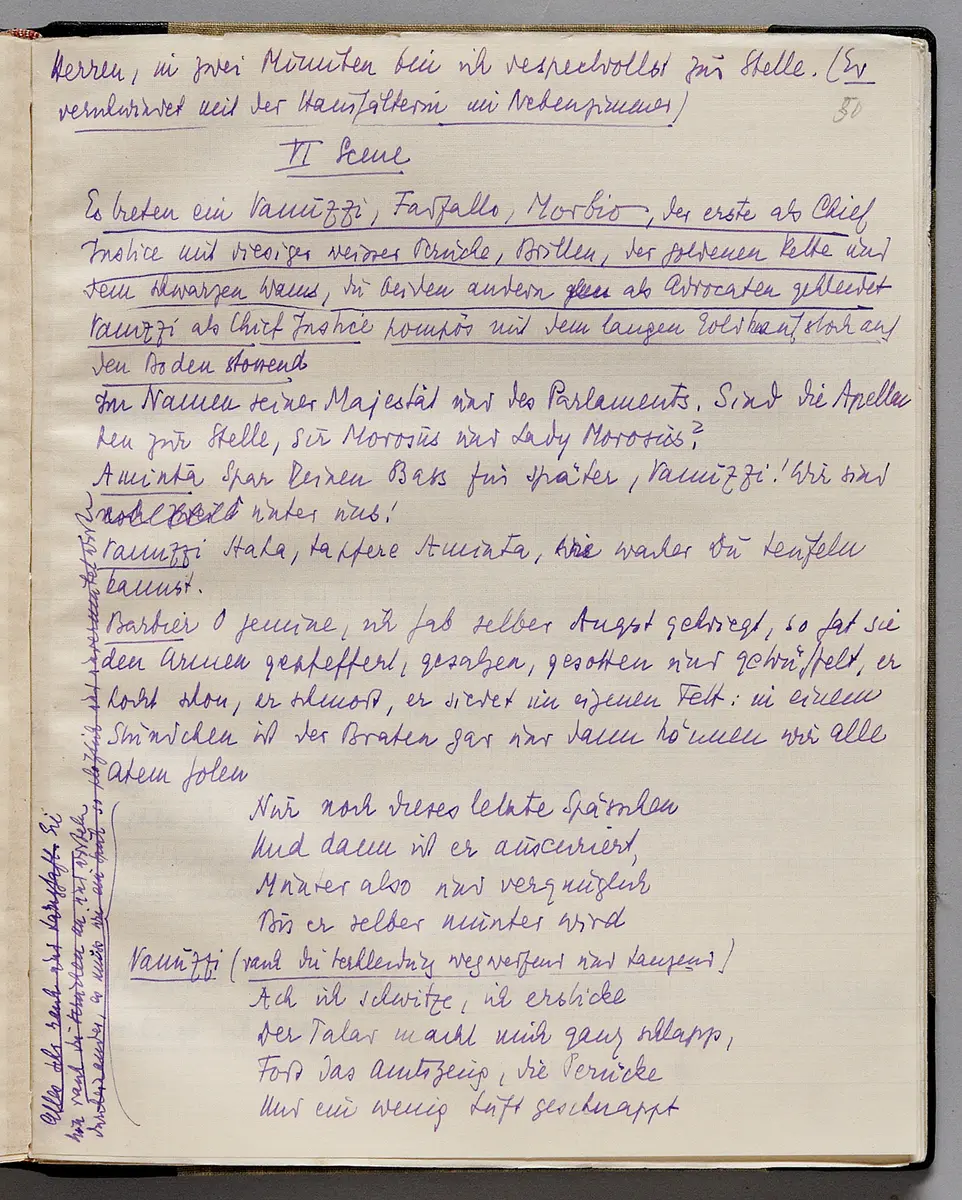 Herren, in zwei Minuten bin ich respectvollst zur Stelle. (Er
verschwindet mit der Haushälterin im Nebenzimmer)
50
VI Scene
Es treten ein Vanuzzi, Farfallo, Morbio, der erste als Chief
Justice mit riesiger weisser Perücke, Brillen, der goldenen Kette und
dem schwarzen Wams, die beiden andern als Advocaten gekleidet
Vanuzzi als Chief Justice pompös mit dem langen Goldknaufstock auf
den Boden stossend
Im Namen seiner Majestät und des Parlaments. Sind die Apellan
ten zur Stelle, Sir Morosus und Lady Morosus?
Aminta Spar Deinen Bass für später, Vanuzzi! Wir sind
unter uns!
Vanuzzi Haha, tapfere Aminta, wie wacker Du teufeln
kannst.
Barbier O jemine, ich hab selber Angst gekriegt, so hat sie
den Armen gepfeffert, gesalzen, gesotten und gewürfelt, er
kocht schon, er schmort, er siedet im eigenen Fett: in einem
Stündchen ist der Braten gar und dann können wir alle
atem holen
Nur noch dieses letzte Spässchen
Und dann ist er auscuriert,
Munter also und vergnüglich
Bis er selber munter wird
Vanuzzi (rasch die Verkleidung wegwerfend und tanzend)
Ach ich schwitze, ich ersticke
Der Talar macht mich ganz schlapp,
Fort das Amtszeug, die Perücke
Und ein wenig Luft geschnappt
Alles sehr rasch und